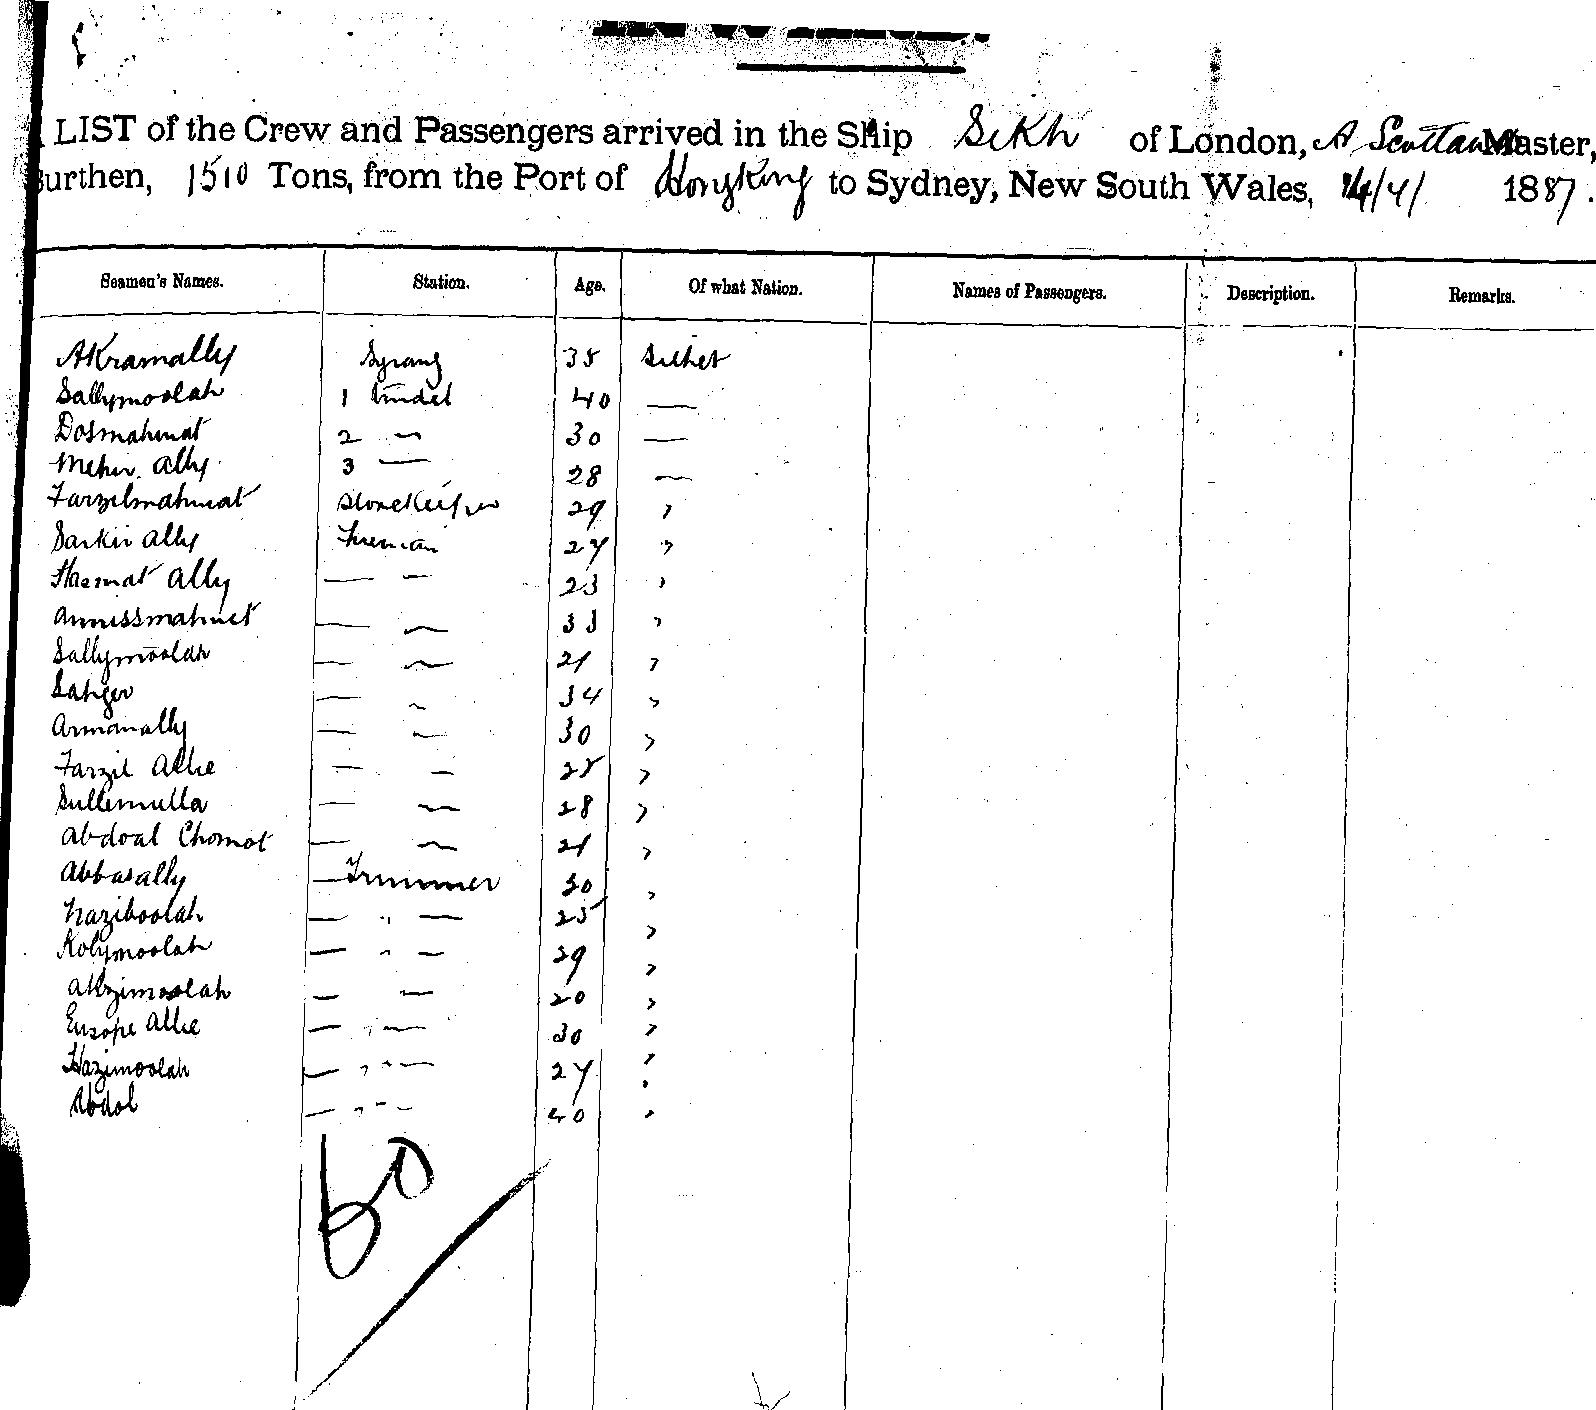 LIST of the Crew and Passengers arrived in the Ship Sikh of London, A Scotland Master,
Burthen, 1510 Tons, from the Port of Hongkong to Sydney, New South Wales, 14/4/ 1887.
Seamen's Names. Station. Age. Of what Nation. Names of Passengers. Description. Remarks.
Akramally Syrang 35 Silhet
Sallymoolah 1 tindel 40 —
Dosmahmat 2 — 30 —
Meher Ally 3 — 28 —
Farzilmahmat Storekeeper 29 "
Sarkir Ally Fireman 27 "
Hasmat Ally — — 23 "
Annissmahmet — — 33 "
Sallymoolah — — 21 "
Sahger — — 34 "
Armanally — — 30 "
Farzil Allie — — 28 "
Sullimulla — — 28 "
Abdoal Chomot — — 21 "
Abbasally — Trimmer 30 "
Naziboolah — " — 25 "
Kolymoolah — " — 29 "
Akzimoolah — — 20 "
Eusope Allie — " — 30 "
Hazimoolah — " — 27 "
Abdol — " — 40 "
60